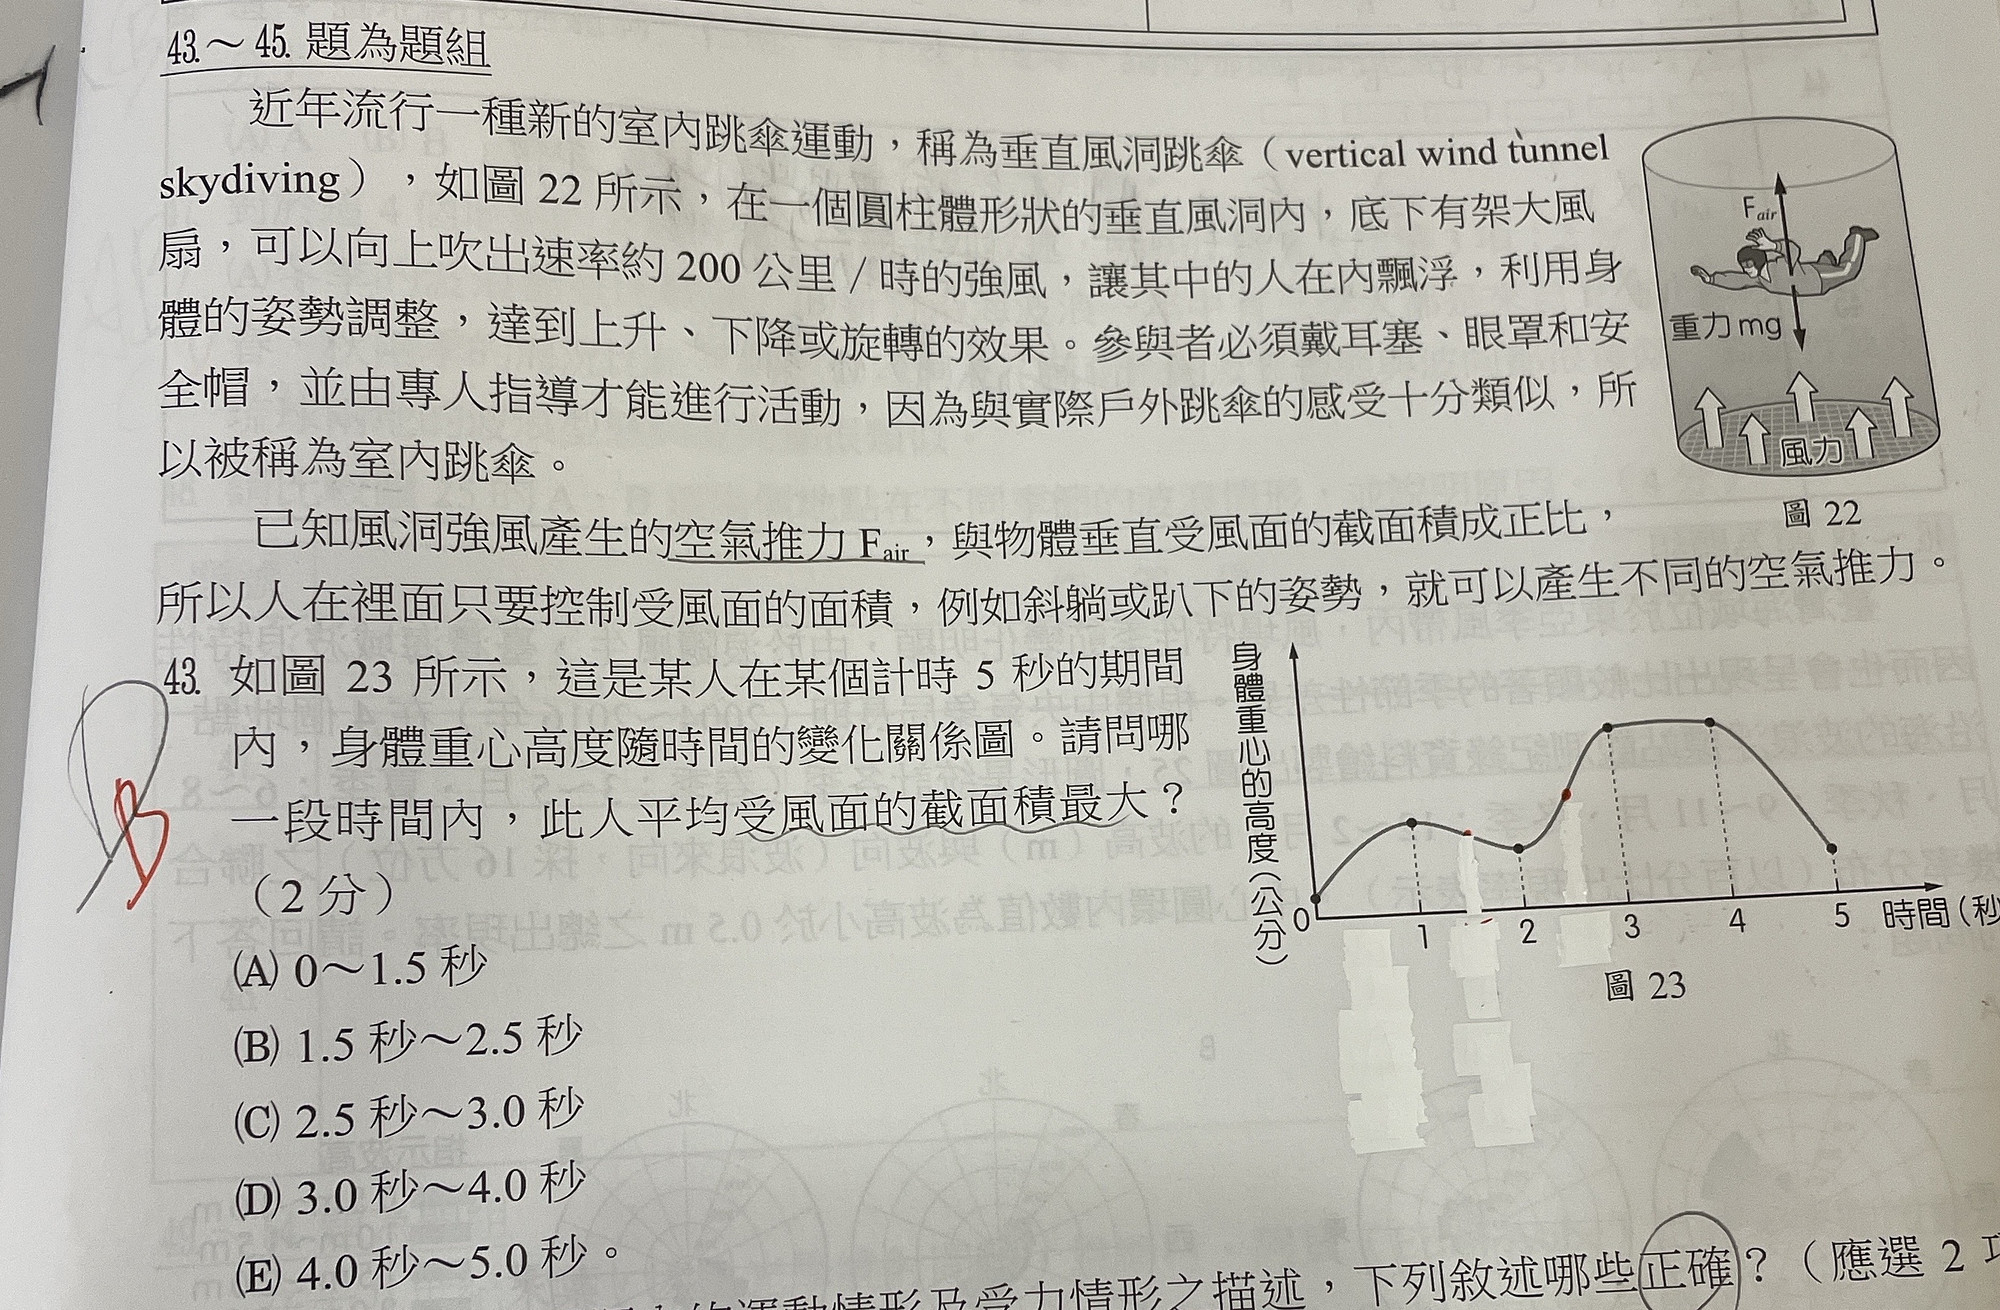 43.～45. 題為題組
近年流行一種新的室內跳傘運動，稱為垂直風洞跳傘（vertical wind tunnel
skydiving），如圖 22 所示，在一個圓柱體形狀的垂直風洞內，底下有架大風
扇，可以向上吹出速率約 200 公里 / 時的強風，讓其中的人在內飄浮，利用身
體的姿勢調整，達到上升、下降或旋轉的效果。參與者必須戴耳塞、眼罩和安
全帽，並由專人指導才能進行活動，因為與實際戶外跳傘的感受十分類似，所
以被稱為室內跳傘。
Fair
重力 mg
風力
圖 22
已知風洞強風產生的空氣推力 Fair，與物體垂直受風面的截面積成正比，
所以人在裡面只要控制受風面的面積，例如斜躺或趴下的姿勢，就可以產生不同的空氣推力。
43. 如圖 23 所示，這是某人在某個計時 5 秒的期間
內，身體重心高度隨時間的變化關係圖。請問哪
一段時間內，此人平均受風面的截面積最大？
（2 分）
(A) 0～1.5 秒
(B) 1.5 秒～2.5 秒
(C) 2.5 秒～3.0 秒
(D) 3.0 秒～4.0 秒
(E) 4.0 秒～5.0 秒。
B
身體重心的高度（公分）
0 1 2 3 4 5 時間（秒
圖 23
運動情形及受力情形之描述，下列敘述哪些正確？（應選 2